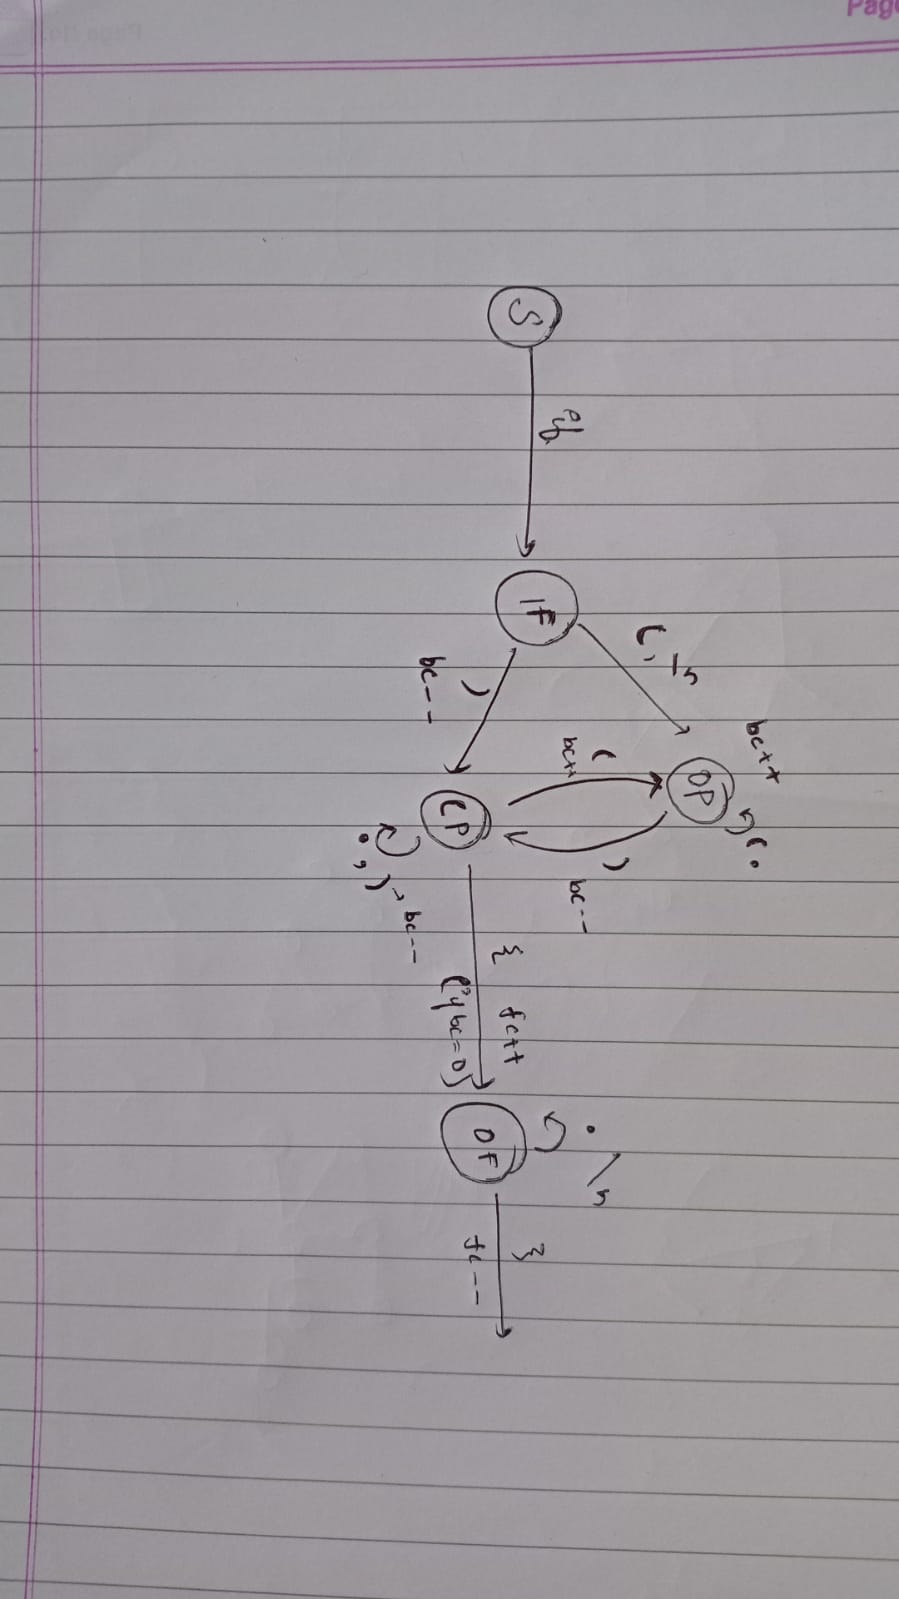 Page
S
if
IF
(, \n
bc++
OP
(.
)
bc--
(
bc++
)
bc--
CP
., ) → bc--
{ fc++
(if bc=0)
OF
. \n
}
fc--